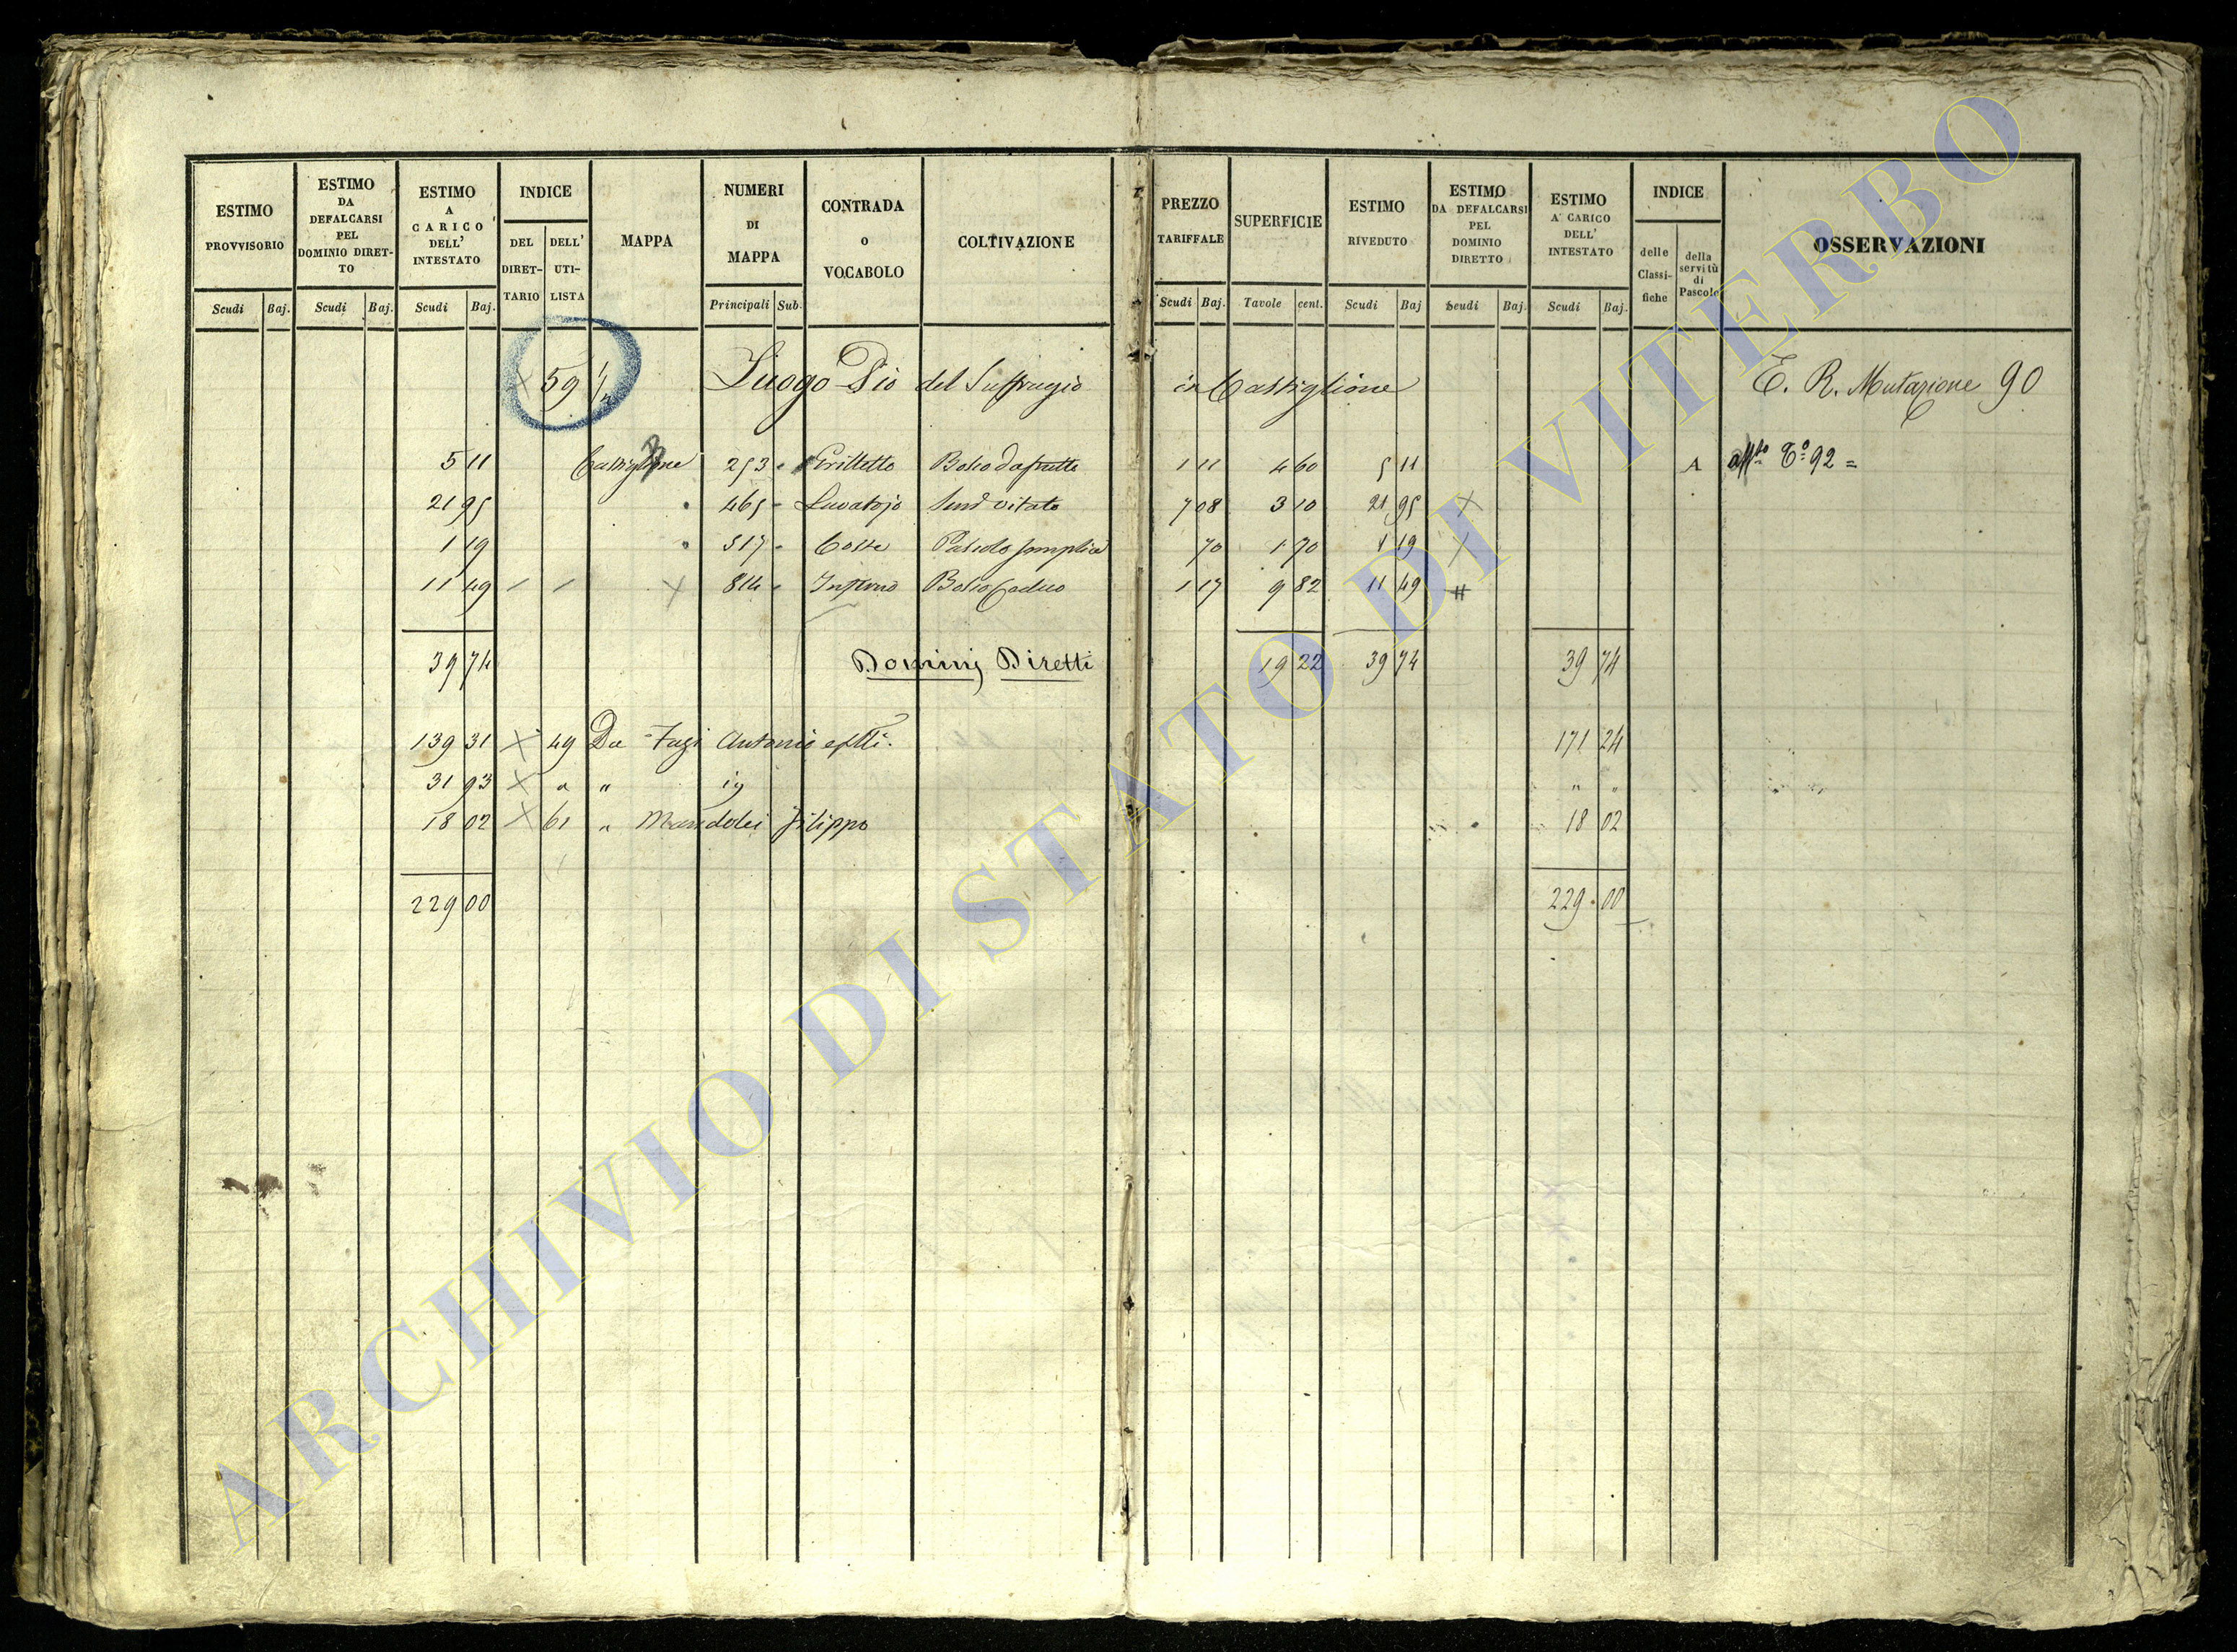 ESTIMO PROVVISORIO
ESTIMO DA DEFALCARSI PEL DOMINIO DIRETTO
ESTIMO A CARICO DELL' INTESTATO
INDICE
DEL DIRETTARIO
DELL' UTILISTA
MAPPA
NUMERI DI MAPPA
CONTRADA O VOCABOLO
COLTIVAZIONE
PREZZO TARIFFALE
SUPERFICIE
ESTIMO RIVEDUTO
ESTIMO DA DEFALCARSI PEL DOMINIO DIRETTO
ESTIMO A CARICO DELL' INTESTATO
INDICE
delle Classifiche
della servitù di Pascolo
OSSERVAZIONI
Scudi Baj. Scudi Baj. Scudi Baj. Principali Sub. Scudi Baj. Tavole cent. Scudi Baj Scudi Baj. Scudi Baj.
59 Luogo Pio del Suffragio in Castiglione E. R. Mutazione 90
5 11 Castiglione 253 Bosco da frutto 1 11 4 60 5 11 A 92 =
21 95 465 Lavatojo Sem.o vitato 7 08 3 10 21 95
1 19 517 Coste Pascolo semplice 70 1 70 1 19
11 49 814 Inferno Bosco Ceduo 1 17 9 82 11 49
39 74 Dominj Diretti 19 22 39 74 39 74
139 31 49 Da Fazi Antonio e flli. 171 24
31 93 " " " "
18 02 61 " Mandolei Filippo 18 02
229 00 229 . 00
ARCHIVIO DI STATO DI VITERBO